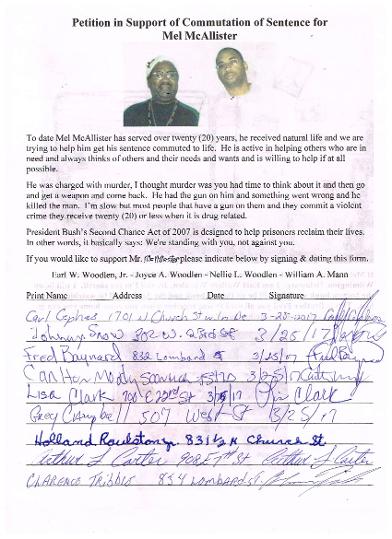 Petition in Support of Commutation of Sentence for
Mel McAllister
To date Mel McAllister has served over twenty (20) years, he received natural life and we are
trying to help him get his sentence commuted to life. He is active in helping others who are in
need and always thinks of others and their needs and wants and is willing to help if at all
possible.
He was charged with murder, I thought murder was you had time to think about it and then go
and get a weapon and come back. He had the gun on him and something went wrong and he
killed the man. I'm slow but most people that have a gun on them and they commit a violent
crime they receive twenty (20) or less when it is drug related.
President Bush's Second Chance Act of 2007 is designed to help prisoners reclaim their lives.
In other words, it basically says: We're standing with you, not against you.
If you would like to support Mr. McAllister please indicate below by signing & dating this form.
Earl W. Woodlen, Jr. - Joyce A. Woodlen - Nellie L. Woodlen - William A. Mann
Print Name Address Date Signature
Carl Cephas 1701 N Church St Wilm De 3-25-2017
Johnny Snow 302 W. 23rd St 3/25/17
Fred Baynard 832 Lombard St 3/25/17 Fred Baynard
Moody 3/25/17
Lisa Clark 700 E 22nd St 3/ /17 Lisa Clark
Greg Campbell 507 West St 3/25/17
Holland Roulston Jr. 831 1/2 N Church St
Arthur L Carter 902 E 7th St Arthur L Carter
Clarence Tribbit 834 Lombard St.